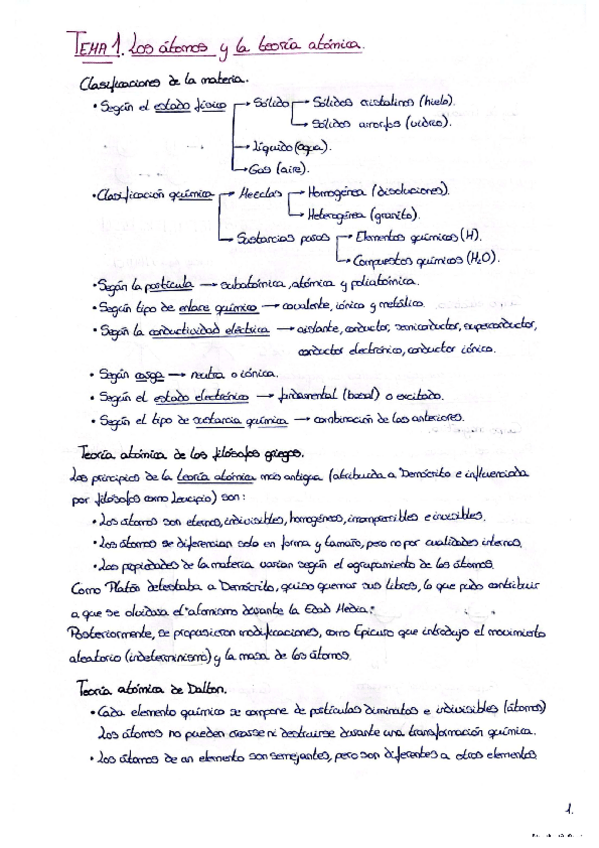 TEMA 1. Los átomos y la teoría atómica.
Clasificaciones de la materia.
• Según el estado físico → Sólido → Sólidos cristalinos (hielo).
→ Sólidos amorfos (vidrio).
→ Líquido (agua).
→ Gas (aire).
• Clasificación química → Mezclas → Homogénea (disoluciones).
→ Heterogénea (granito).
→ Sustancias puras → Elementos químicos (H).
→ Compuestos químicos (H₂O).
• Según la partícula → subatómica, atómica y poliatómica.
• Según tipo de enlace químico → covalente, iónico y metálico.
• Según la conductividad eléctrica → aislante, conductor, semiconductor, superconductor,
conductor electrónico, conductor iónico.
• Según carga → neutra o iónica.
• Según el estado electrónico → fundamental (basal) o excitado.
• Según el tipo de sustancia química → combinación de las anteriores.
Teoría atómica de los filósofos griegos.
Los principios de la teoría atómica más antigua (atribuida a Demócrito e influenciada
por filósofos como Leucipio) son:
• Los átomos son eternos, indivisibles, homogéneos, incompresibles e invisibles.
• Los átomos se diferencian solo en forma y tamaño, pero no por cualidades internas.
• Las propiedades de la materia varían según el agrupamiento de los átomos.
Como Platón detestaba a Demócrito, quiso quemar sus libros, lo que pudo contribuir
a que se olvidase el atomismo durante la Edad Media.
Posteriormente, se propusieron modificaciones, como Epicuro que introdujo el movimiento
aleatorio (indeterminismo) y la masa de los átomos.
Teoría atómica de Dalton.
• Cada elemento químico se compone de partículas diminutas e indivisibles (átomos)
Los átomos no pueden crearse ni destruirse durante una transformación química.
• Los átomos de un elemento son semejantes, pero son diferentes a otros elementos.
1.